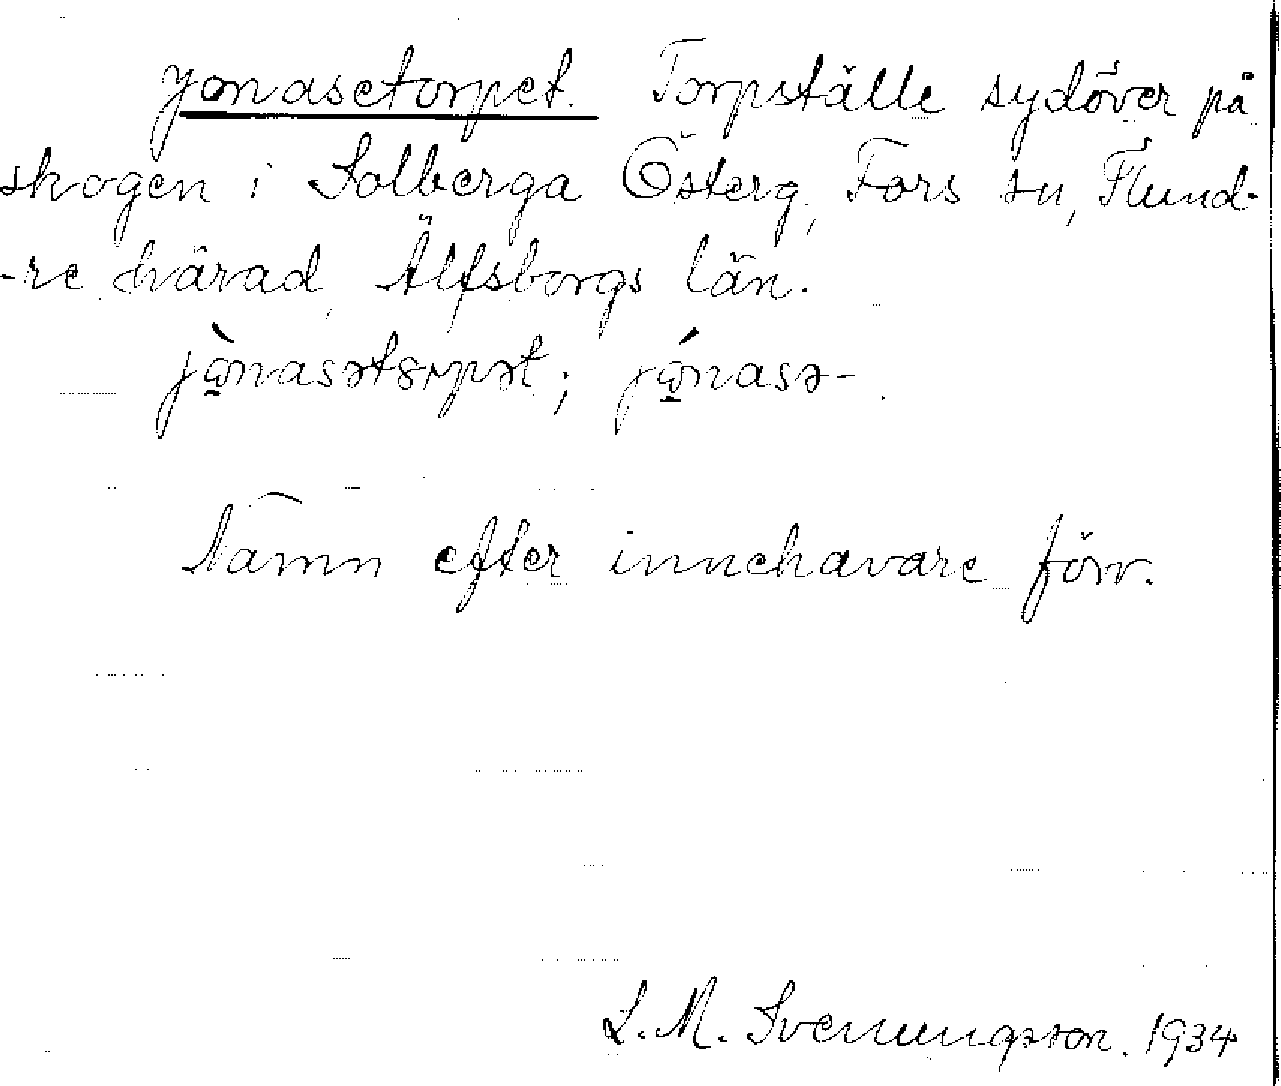 Jonasetorpet. Torpställe sydöver på
skogen i Solberga Österg, Fors sn, Flund-
-re härad, Älfsborgs län.
jò̱nasətȣrpət; jó̱nasə-
Namn efter innehavare förr.
L. M. Svenungsson. 1934